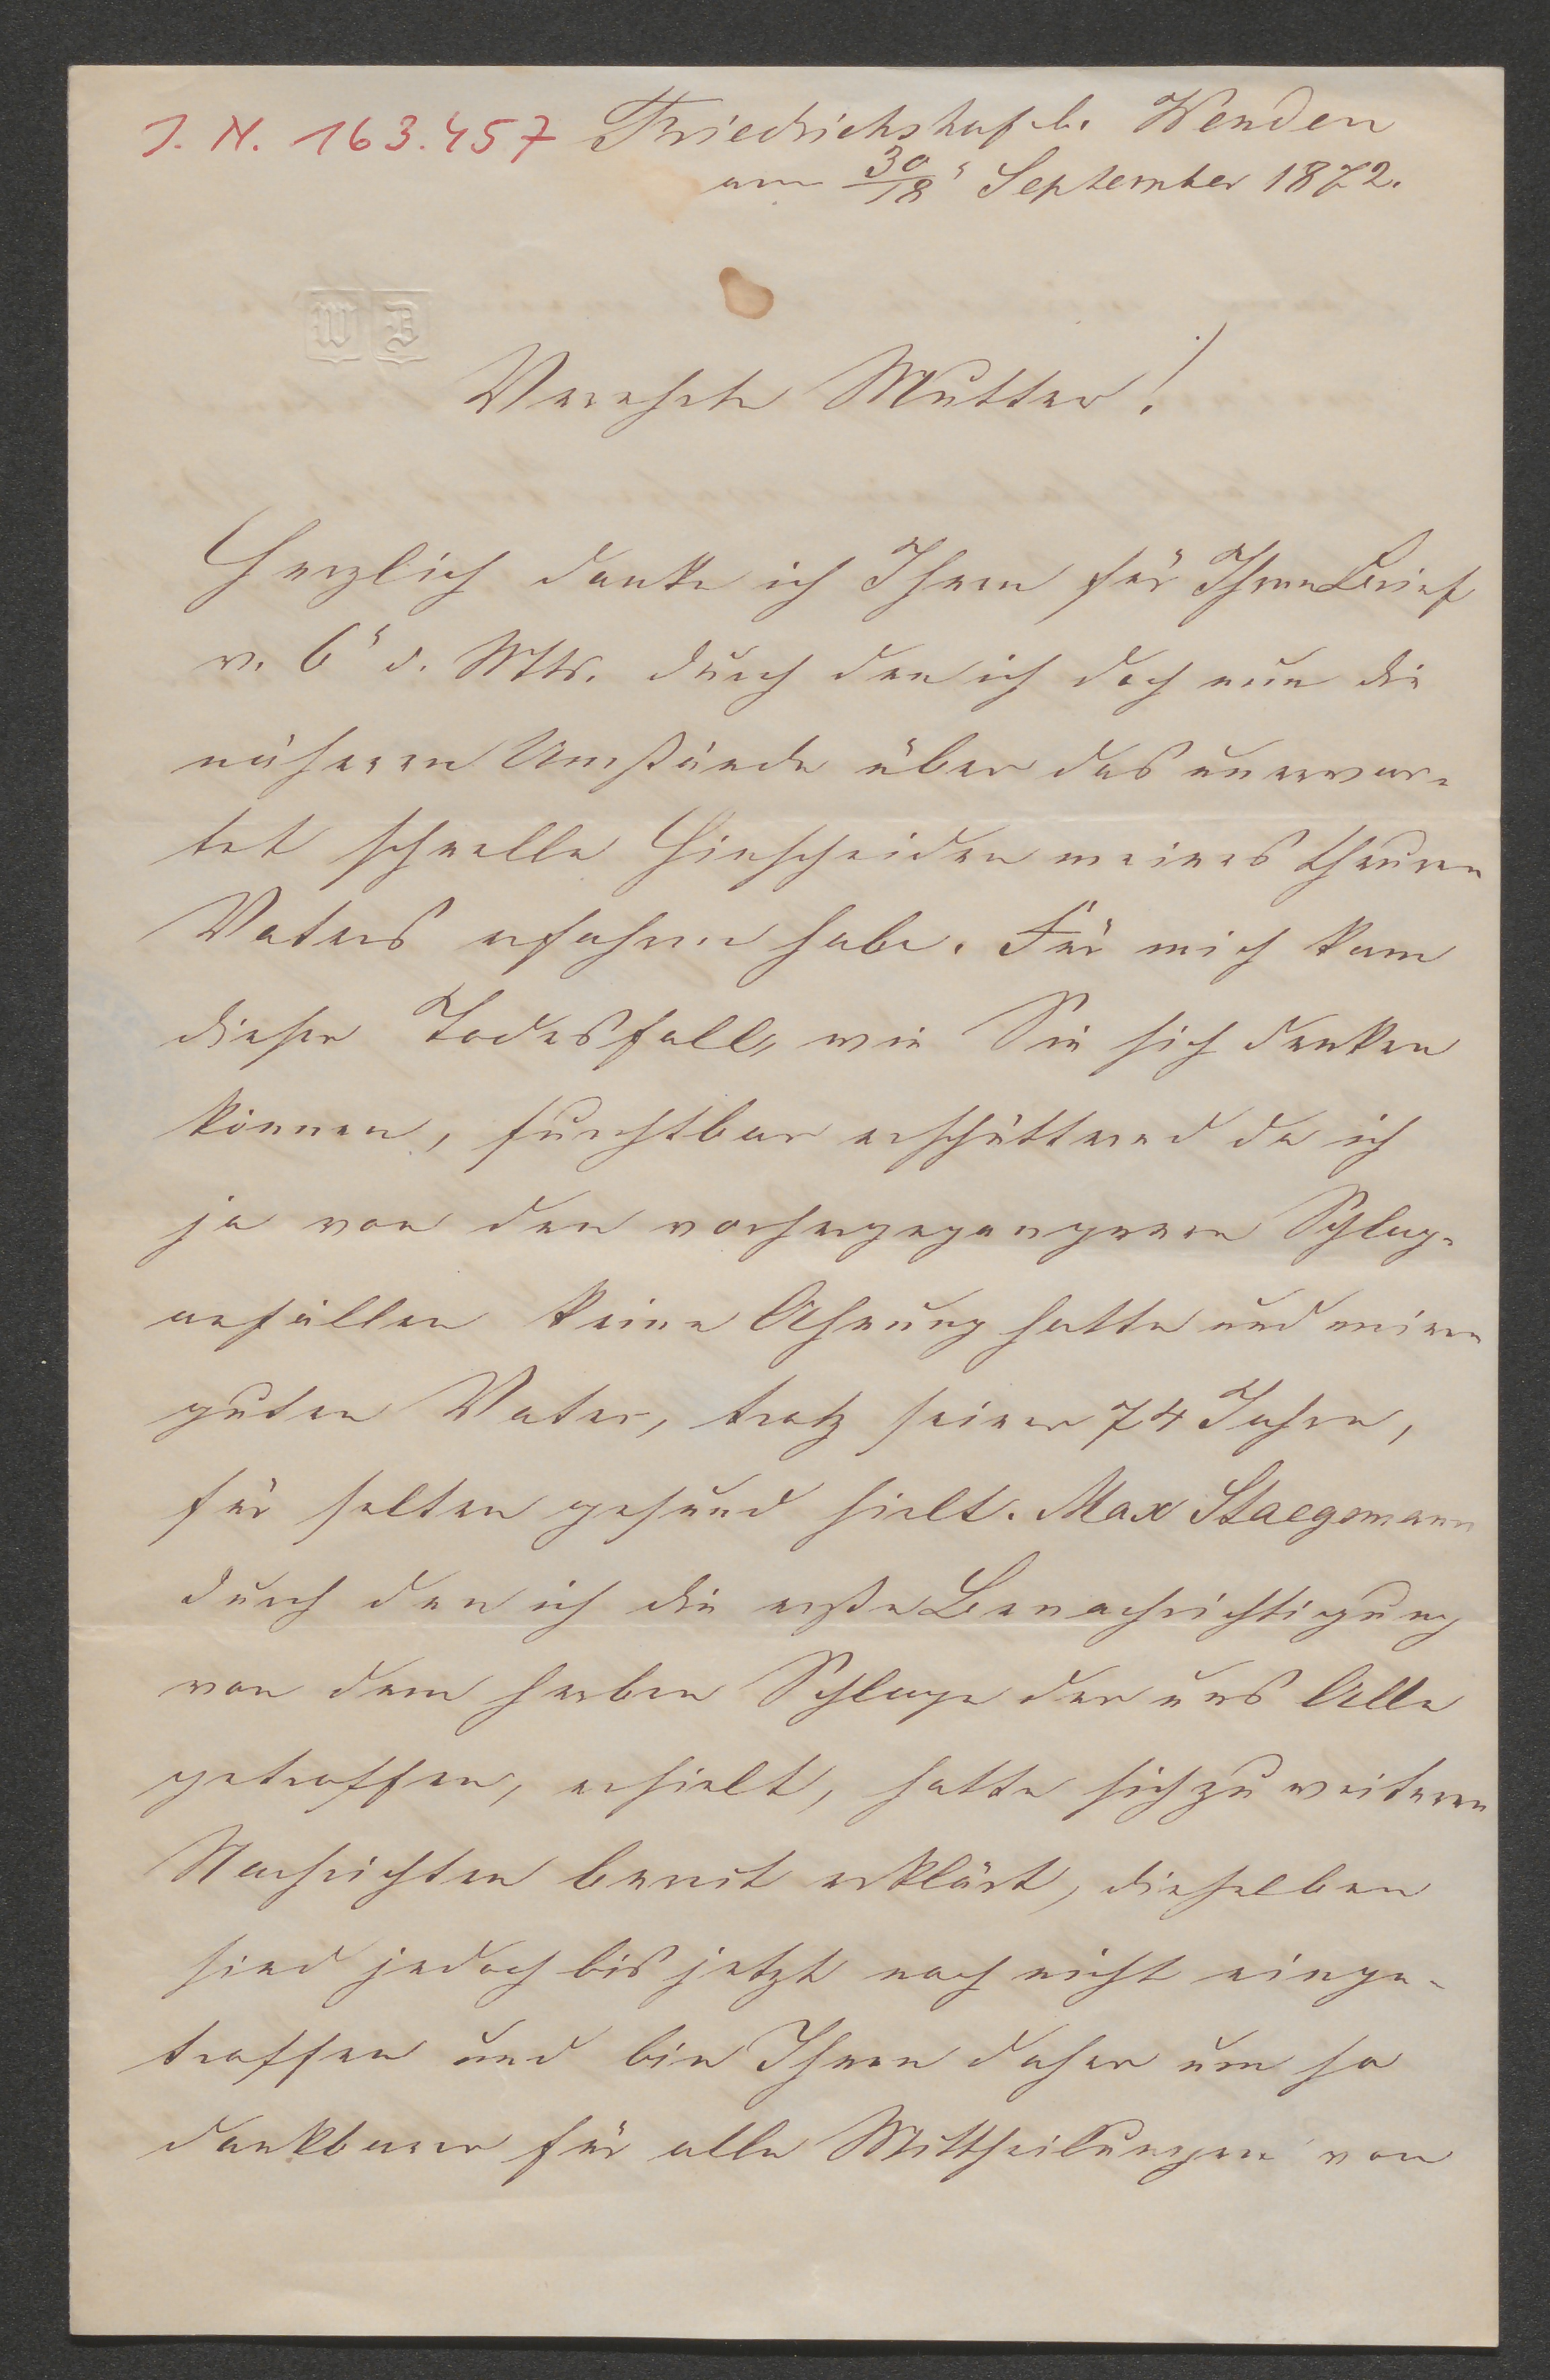 J. N. 163.457 Friedrichshof b. Wenden
am 30/18" September 1872.
W D
Verehrte Mutter!
Herzlich danke ich Ihnen für Ihren Brief
v. 6" d. Mts. durch den ich doch nun die
näheren Umstände über das unerwar-
tet schnelle Hinscheiden meines theuren
Vaters erfahren habe. Für mich kam
dieser Todesfall, wie Sie sich denken
können, furchtbar erschütternd da ich
ja von den vorhergegangenen Schlag-
anfällen keine Ahnung hatte und meinen
guten Vater, trotz seiner 74 Jahre,
für selten gesund hielt. Max Staegemann
durch den ich die erste Benachrichtigung
von dem herben Schlage der uns Alle
getroffen, erhielt, hatte sich zu weiteren
Nachrichten bereit erklärt, dieselben
sind jedoch bis jetzt noch nicht einge-
troffen und bin Ihnen daher um so
dankbarer für alle Mittheilungen von